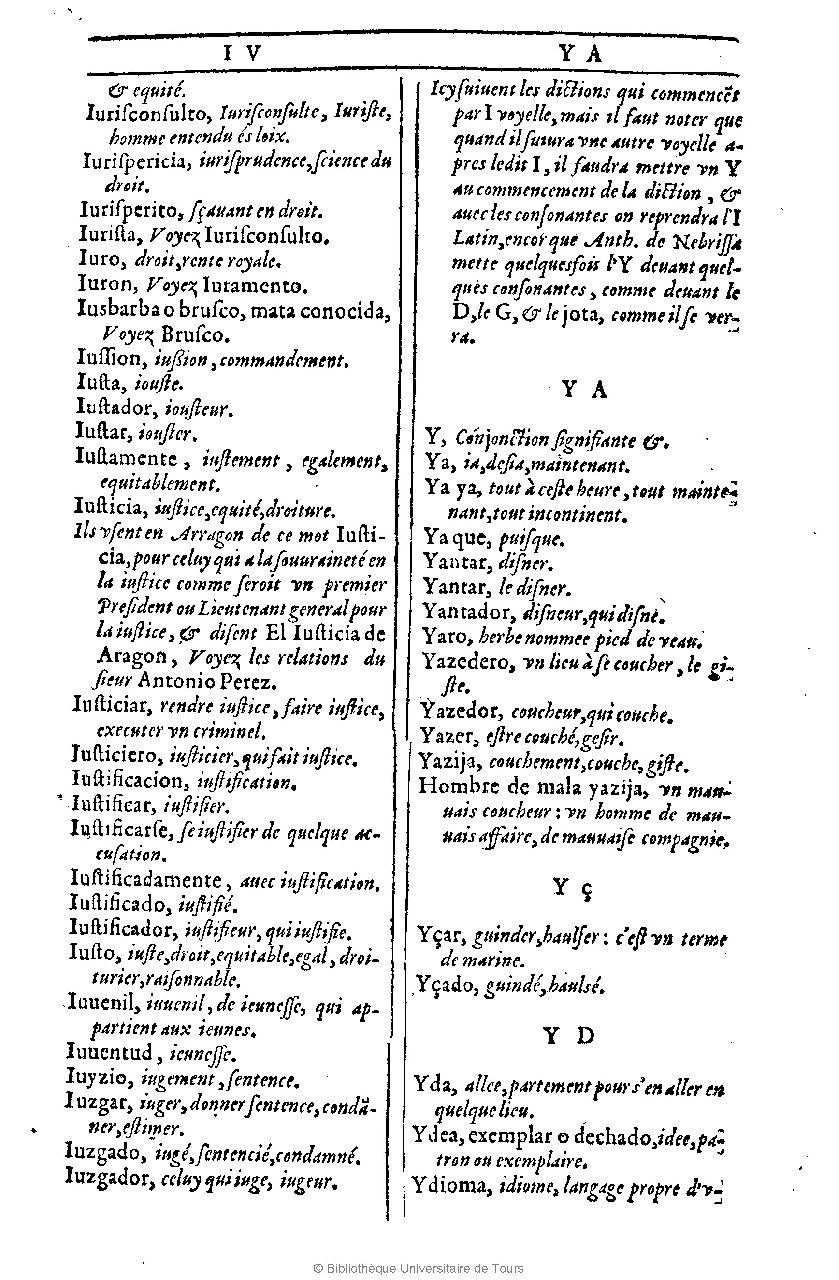 I V
& equité.
Iuriſconſulto, Iuriſconſulte, Iuriſte,
homme entendu és loix.
Iuriſpericia, iuriſprudence, ſcience du
droit.
Iuriſperito, ſçauant en droit.
Iuriſta, Voyez Iuriſconſulto.
Iuro, droit, rente royale.
Iuron, Voyez Iuramento.
Iusbarba o bruſco, mata conocida,
Voyez Bruſco.
Iuſſion, iußion, commandement.
Iuſta, iouſte.
Iuſtador, iouſteur.
Iuſtar, iouſter.
Iuſtamente, iuſtement, egalement,
equitablement.
Iuſticia, iuſtice, equité, droiture.
Ils vſent en Arragon de ce mot Iuſti-
cia, pour celuy qui a la ſouuraineté en
la iuſtice comme ſeroit vn premier
Preſident ou Lieutenant general pour
la iuſtice, & diſent El Iuſticia de
Aragon, Voyez les relations du
ſieur Antonio Perez.
Iuſticiar, rendre iuſtice, faire iuſtice,
executer vn criminel.
Iuſticiero, iuſticier, qui fait iuſtice.
Iuſtificacion, iuſtification.
Iuſtificar, iuſtifier.
Iuſtificarſe, ſe iuſtifier de quelque ac-
cuſation.
Iuſtificadamente, auec iuſtification.
Iuſtificado, iuſtifié.
Iuſtificador, iuſtifieur, qui iuſtifie.
Iuſto, iuſte, droit, equitable, egal, droi-
turier, raiſonnable.
Iuuenil, iuuenil, de ieuneſſe, qui ap-
partient aux ieunes.
Iuuentud, ieuneſſe.
Iuyzio, iugement, ſentence.
Iuzgar, iuger, donner ſentence, condã-
ner, eſtimer.
Iuzgado, iugé, ſentencié, condamné.
Iuzgador, celuy qui iuge, iugeur.
Y A
Icy ſuiuent les dictions qui commencẽt
par I voyelle, mais il faut noter que
quand il ſuiura vne autre voyelle a-
pres ledit I, il faudra mettre vn Y
au commencement de la diction, &
auec les conſonantes on reprendra l'I
Latin, encor que Anth. de Nebriſſa
mette quelquesfois l'Y deuant quel-
ques conſonantes, comme deuant le
D, le G, & le jota, comme il ſe ver-
ra.
Y A
Y, Conjonction ſignifiante &.
Ya, ia, deſia, maintenant.
Ya ya, tout à ceſte heure, tout mainte-
nant, tout incontinent.
Ya que, puiſque.
Yantar, diſner.
Yantar, le diſner.
Yantador, diſneur, qui diſne.
Yaro, herbe nommee pied de veau.
Yazedero, vn lieu à ſe coucher, le gi-
ſte.
Yazedor, coucheur, qui couche.
Yazer, eſtre couché, geſir.
Yazija, couchement, couche, giſte.
Hombre de mala yazija, vn mau-
uais coucheur : vn homme de mau-
uais affaire, de mauuaiſe compagnie.
Y ç
Yçar, guinder, haulſer : c'eſt vn terme
de marine.
Yçado, guindé, haulsé.
Y D
Yda, allee, partement pour s'en aller en
quelque lieu.
Ydea, exemplar o dechado, idee, pa-
tron ou exemplaire.
Ydioma, idiome, langage propre d'v-
© Bibliothèque Universitaire de Tours